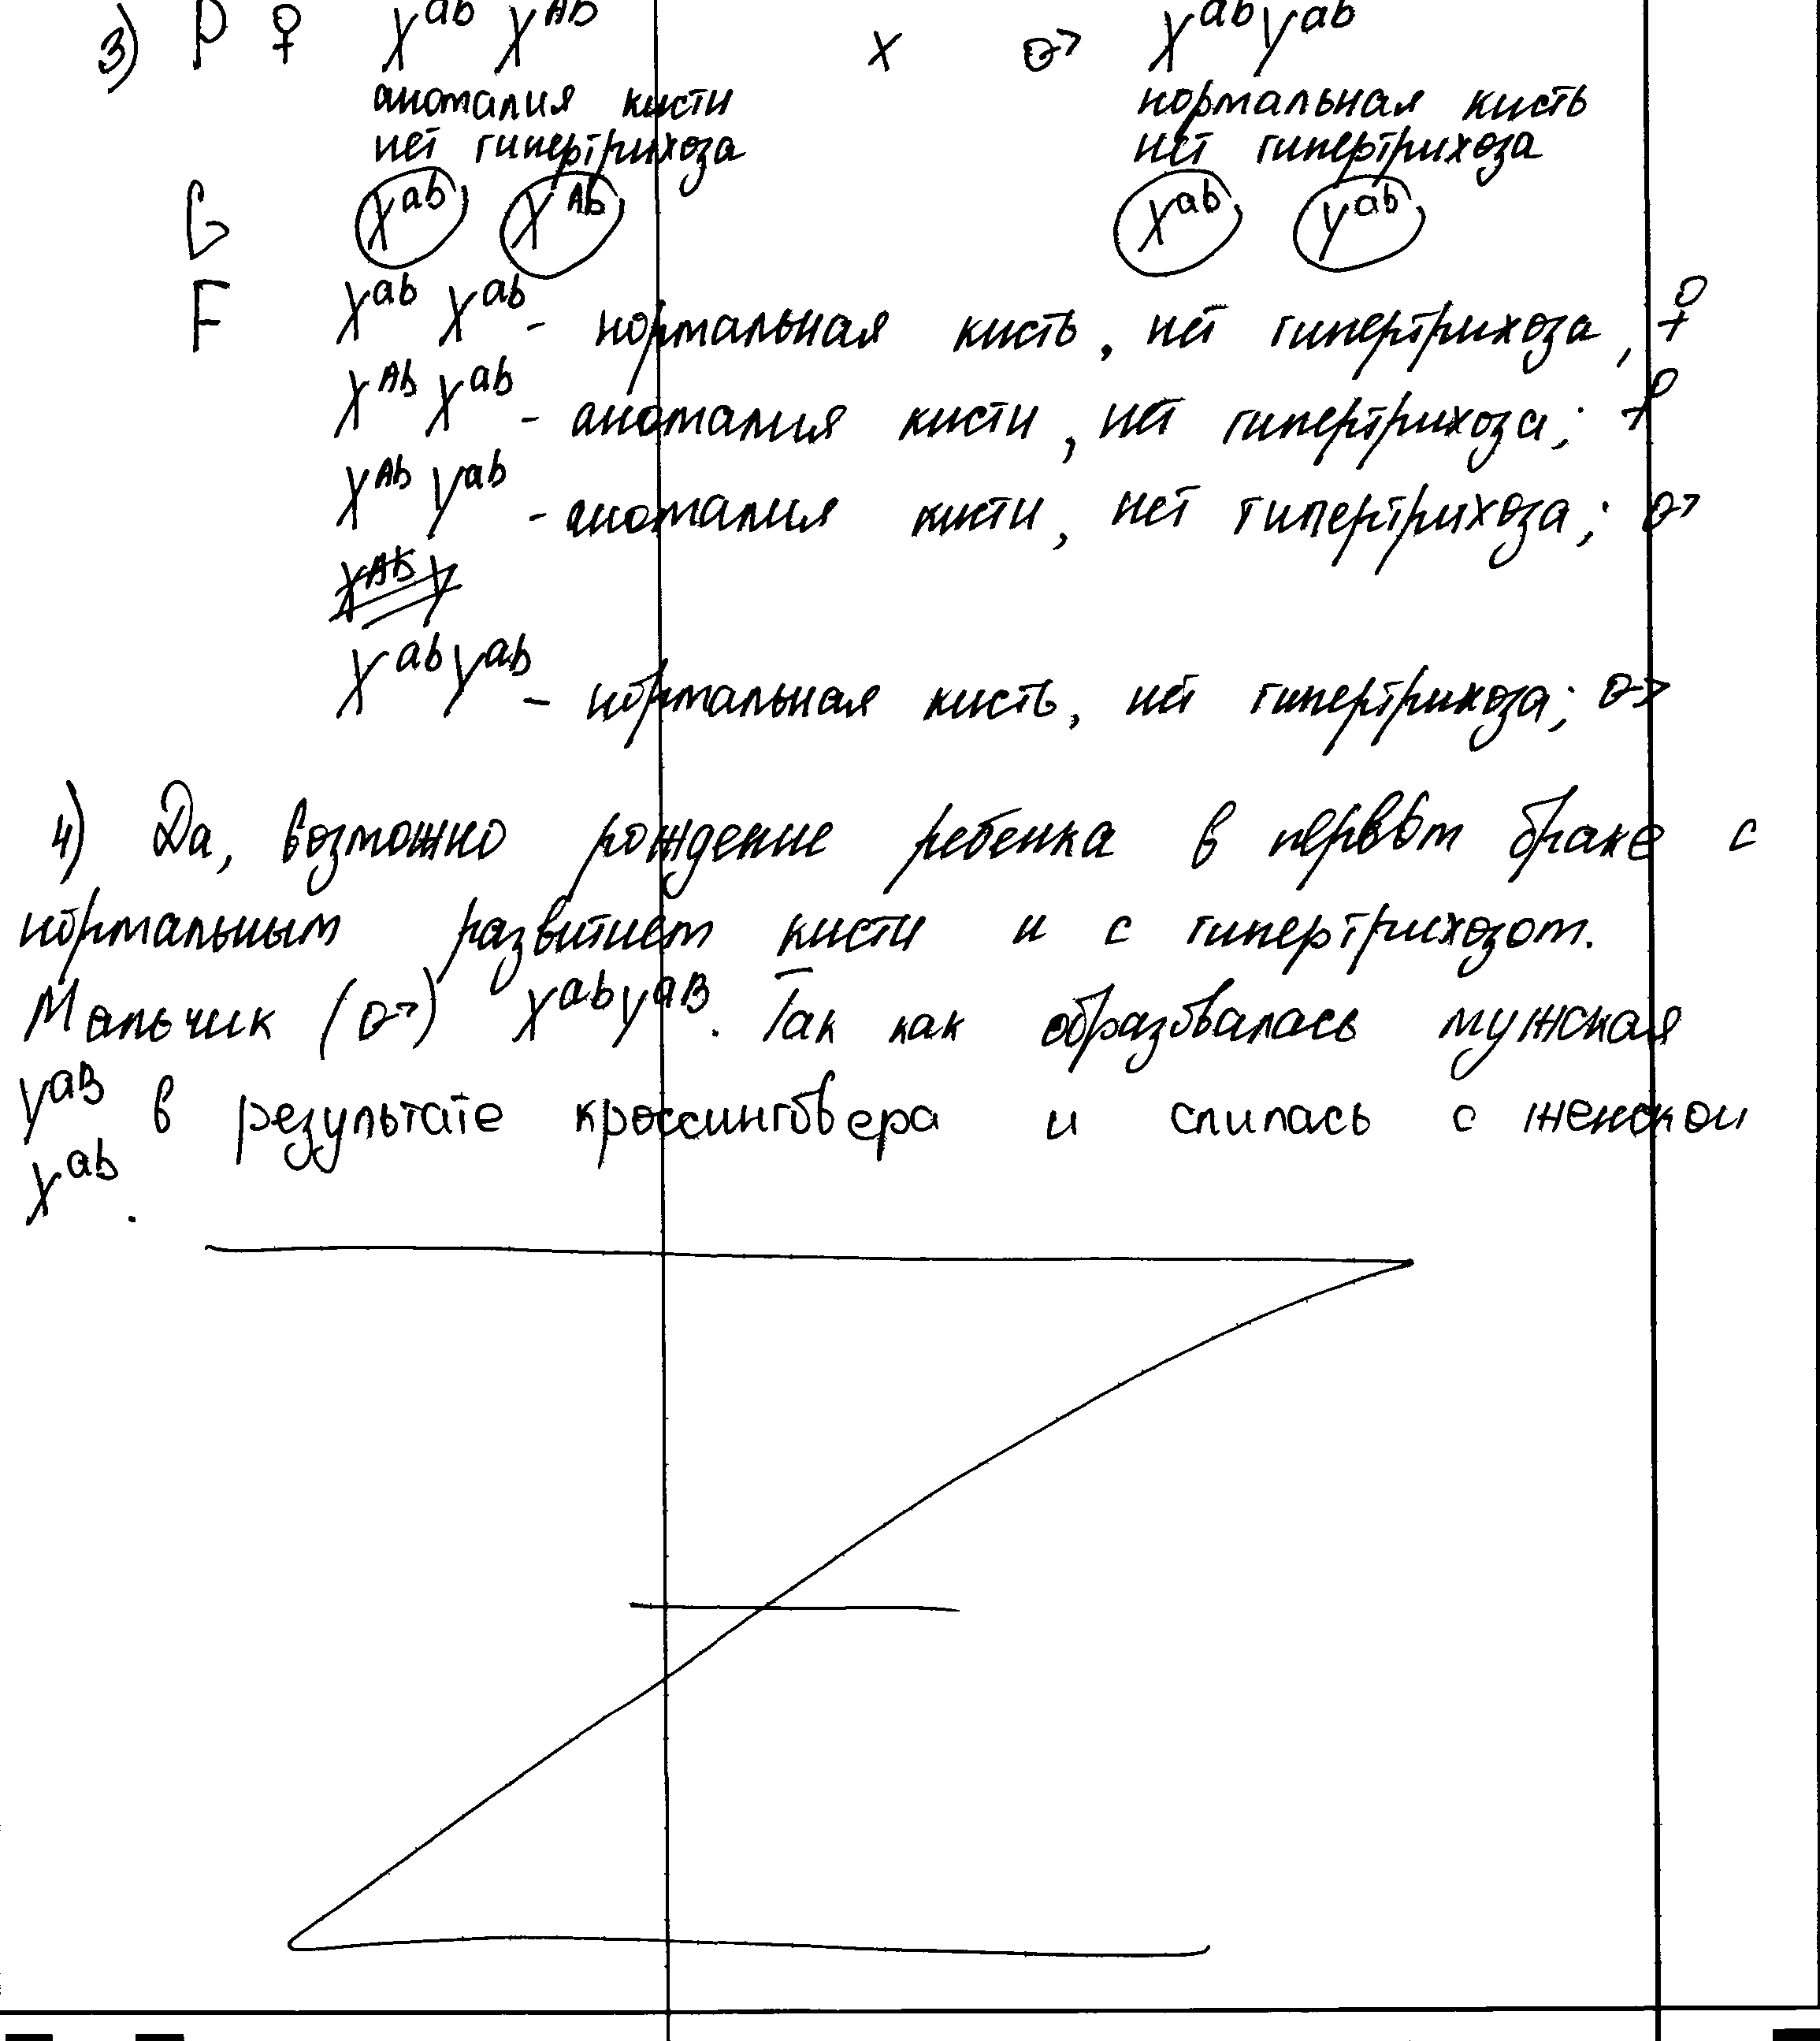 3) P ♀ X^ab X^Ab x ♂ X^ab Y^ab
аномалия кисти нормальная кисть
нет гипертрихоза нет гипертрихоза
G X^ab X^Ab X^ab Y^ab
F X^ab X^ab - нормальная кисть, нет гипертрихоза, ♀
X^Ab X^ab - аномалия кисти, нет гипертрихоза; ♀
X^Ab Y^ab - аномалия кисти, нет гипертрихоза; ♂
X^Ab Y
X^ab Y^ab - нормальная кисть, нет гипертрихоза; ♂
4) Да, возможно рождение ребенка в первом браке с
нормальным развитием кисти и с гипертрихозом.
Мальчик (♂) X^ab Y^aB. Так как образовалась мужская
Y^aB в результате кроссинговера и слилась с женской
X^ab.